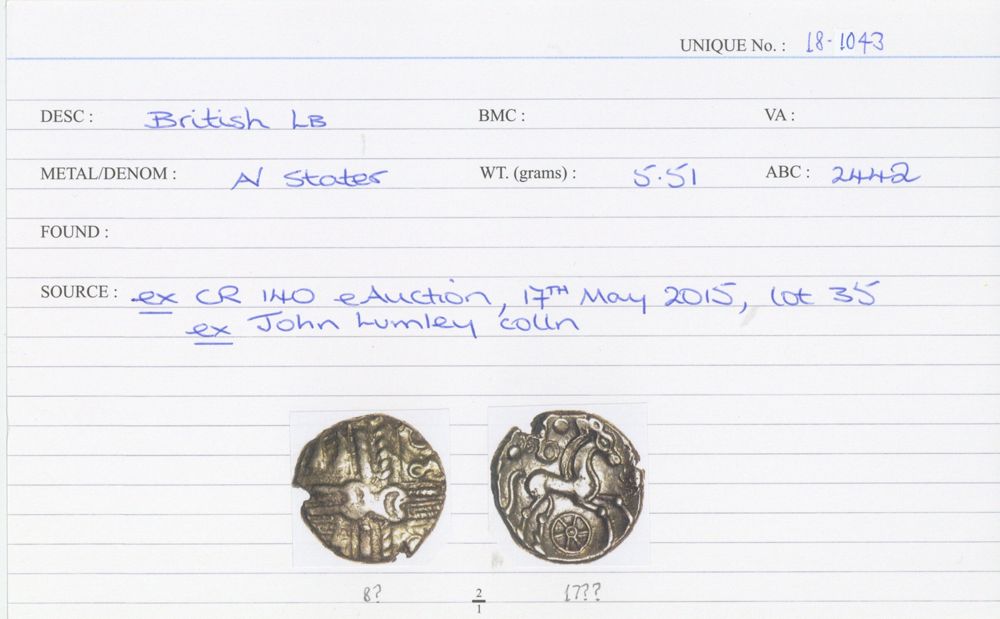 UNIQUE No. : 18-1043
DESC : British LB BMC : VA :
METAL/DENOM : AV Stater WT. (grams) : 5.51 ABC : 2442
FOUND :
SOURCE : ex CR 140 eAuction, 17TH May 2015, lot 35
ex John Lumley colln
8? 2/1 17??